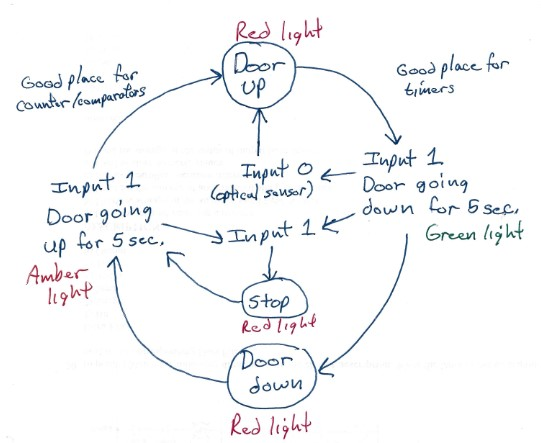 Red light
Door
up
Good place for
counter/comparators
Good place for
timers
Input 0
(optical sensor)
Input 1
Door going
down for 5 sec.
Green light
Input 1
Door going
up for 5 sec.
Amber
light
Input 1
Stop
Red light
Door
down
Red light